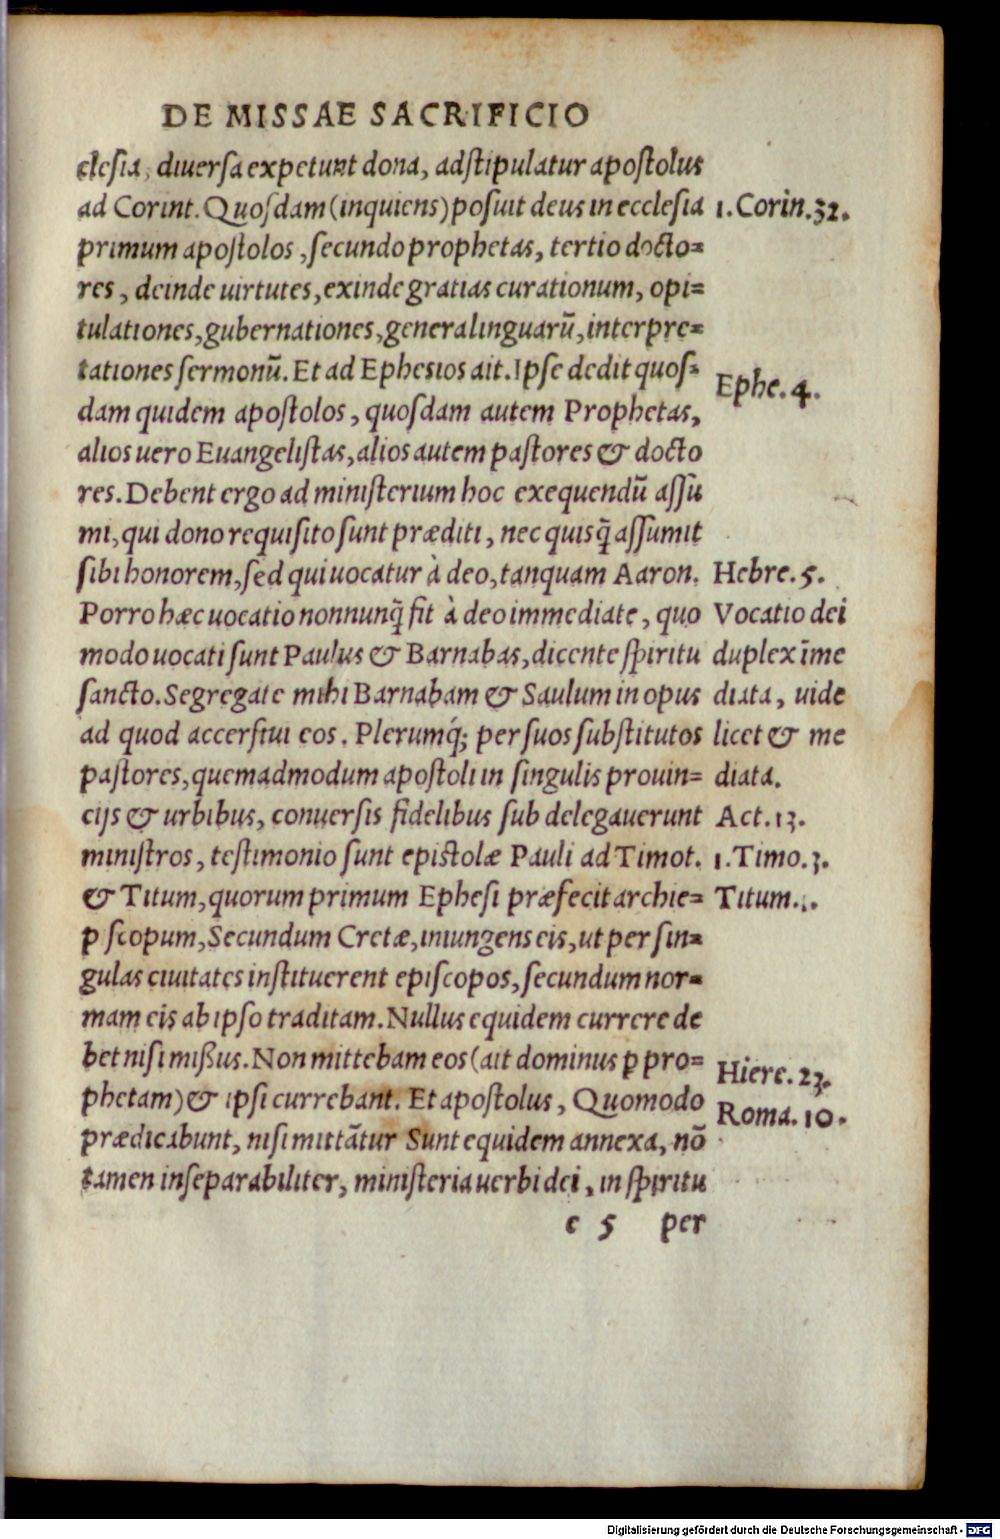 DE MISSAE SACRIFICIO
clesia, diuersa expetunt dona, adstipulatur apostolus
ad Corint. Quosdam (inquiens) posuit deus in ecclesia
primum apostolos, secundo prophetas, tertio docto=
res, deinde uirtutes, exinde gratias curationum, opi=
tulationes, gubernationes, genera linguarū, interpre=
tationes sermonū. Et ad Ephesios ait. Ipse dedit quos=
dam quidem apostolos, quosdam autem Prophetas,
alios uero Euangelistas, alios autem pastores & docto
res. Debent ergo ad ministerium hoc exequendū assu
mi, qui dono requisito sunt præditi, nec quisq̃ assumit
sibi honorem, sed qui uocatur à deo, tanquam Aaron.
Porro hæc uocatio nonnunq̃ fit à deo immediate, quo
modo uocati sunt Paulus & Barnabas, dicente spiritu
sancto. Segregate mihi Barnabam & Saulum in opus
ad quod accersiui eos. Plerumq́; per suos substitutos
pastores, quemadmodum apostoli in singulis prouin=
cijs & urbibus, conuersis fidelibus sub delegauerunt
ministros, testimonio sunt epistolæ Pauli ad Timot.
& Titum, quorum primum Ephesi præfecit archie=
p scopum, Secundum Cretæ, iniungens eis, ut per sin=
gulas ciuitates instituerent episcopos, secundum nor=
mam eis ab ipso traditam. Nullus equidem currere de
bet nisi mißus. Non mittebam eos (ait dominus ꝑ pro=
phetam) & ipsi currebant. Et apostolus, Quomodo
prædicabunt, nisi mittātur Sunt equidem annexa, nō
tamen inseparabiliter, ministeria uerbi dei, in spiritu
e 5 per
1. Corin. 32.
Ephe. 4.
Hebre. 5.
Vocatio dei
duplex īme
diata, uide
licet & me
diata.
Act. 13.
1. Timo. 3.
Titum. 1.
Hiere. 23.
Roma. 10.
Digitalisierung gefördert durch die Deutsche Forschungsgemeinschaft - DFG